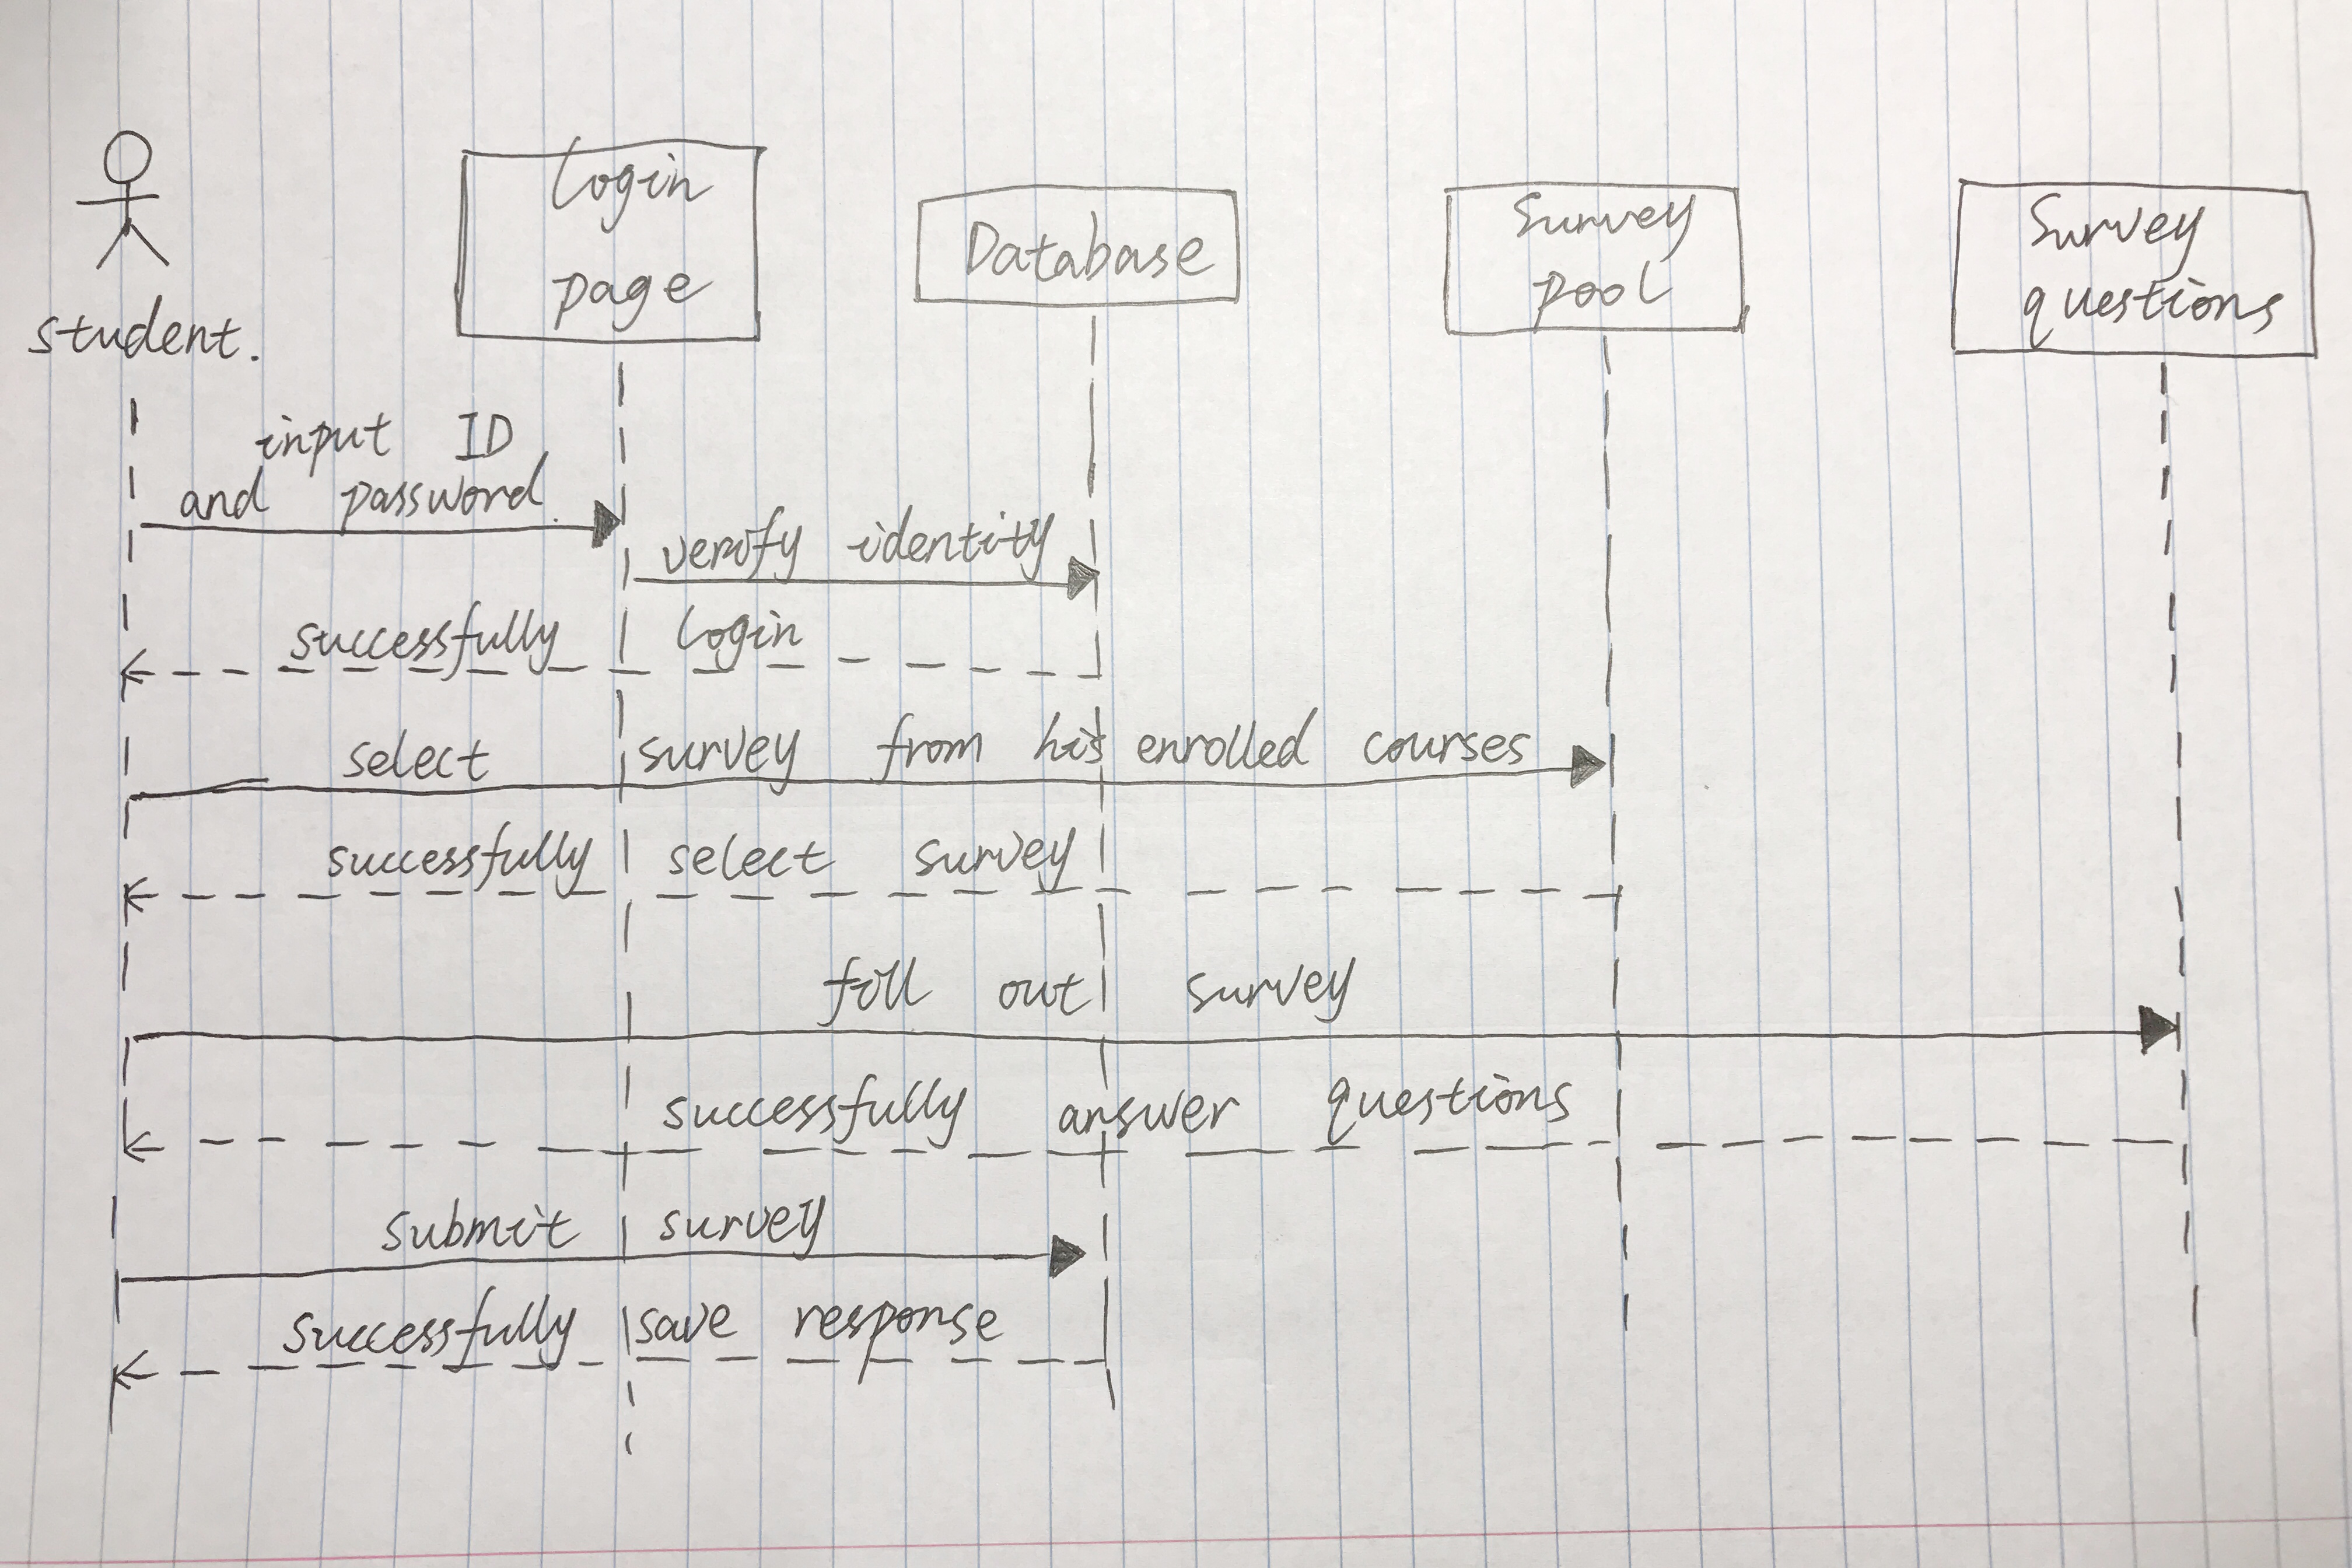 Login
page
Database
Survey
pool
Survey
questions
student.
input ID
and password.
verify identity
successfully login
select survey from his enrolled courses
successfully select survey
fill out survey
successfully answer questions
submit survey
successfully save response